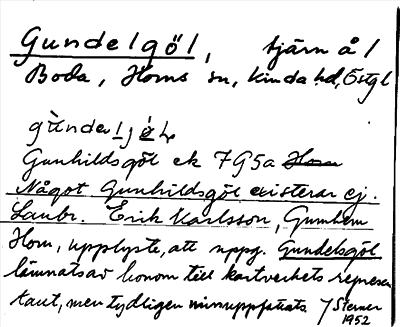 Gundelgöl, tjärn å /
Boda, Horns sn, Kinda hd, Östgl
Gunhildsgöl ek 7G5a Horn
Något Gunhildsgöl existerar ej.
Lantbr. Erik Karlsson, Gunhem
Horn, upplyste, att uppg. Gundelsgöl
lämnats av honom till kartverkets represen
tant, men tydligen missuppfattats. J Sterner
1952